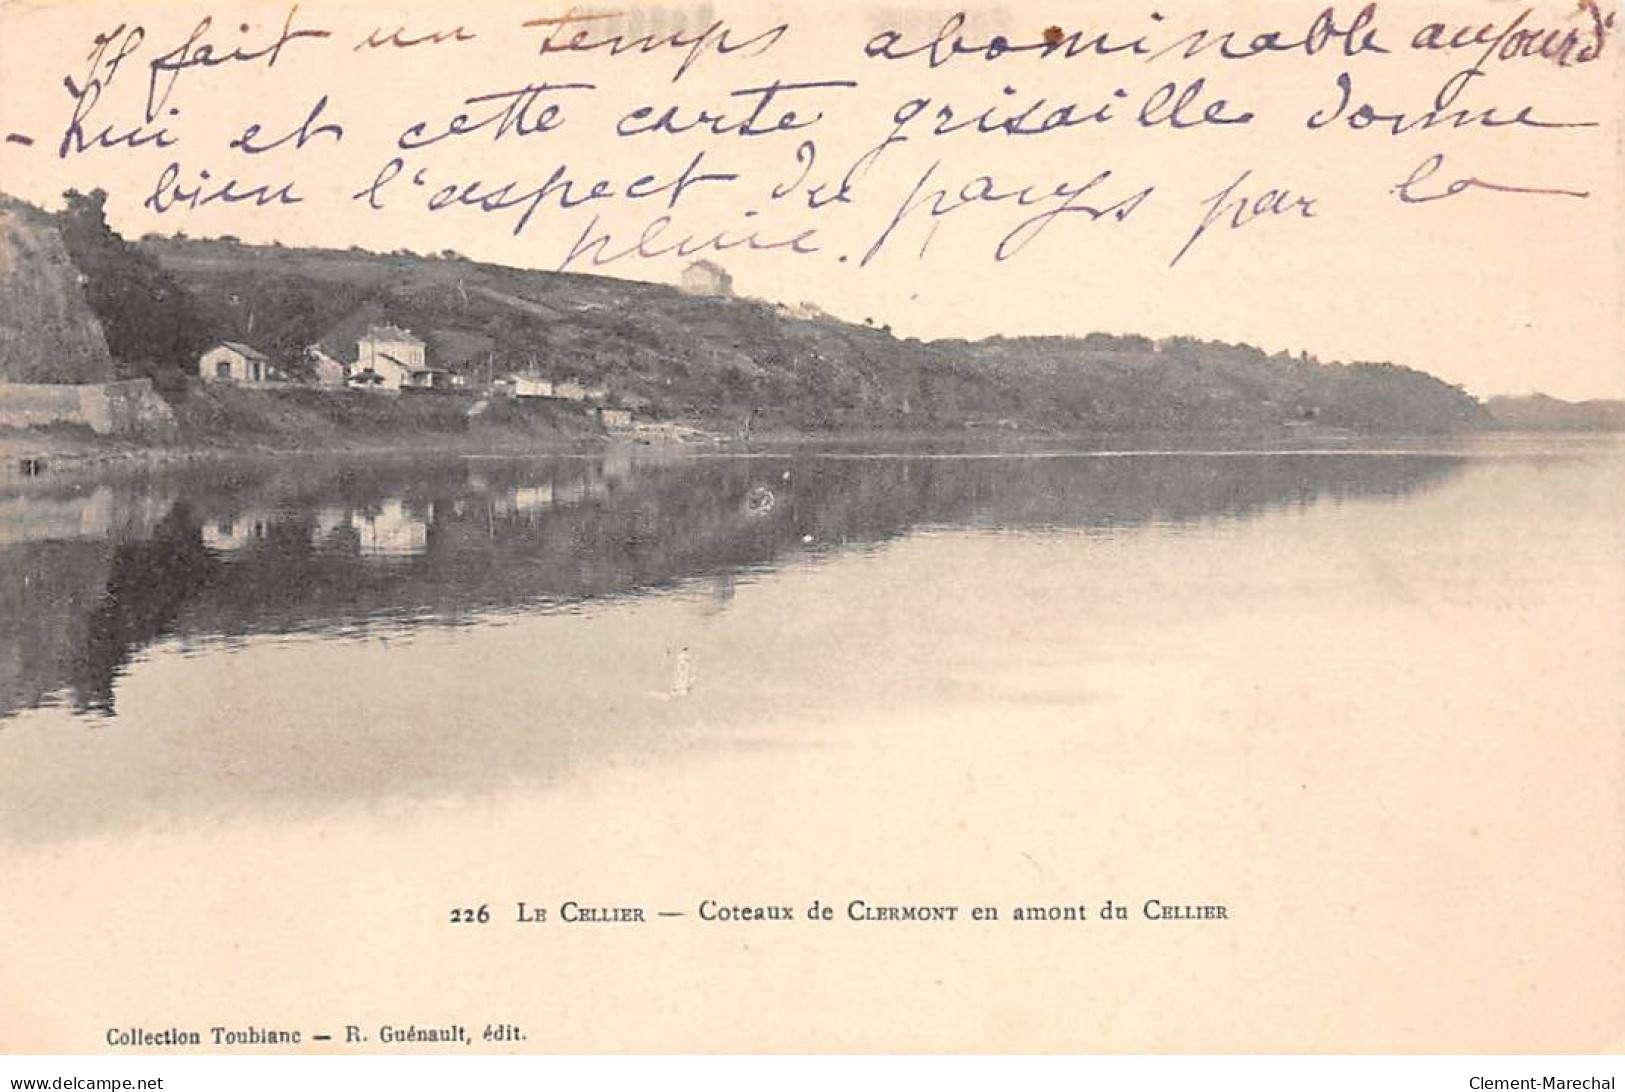 Il fait un temps abominable aujourd'
- hui et cette carte grisaille donne
bien l'aspect du pays par la
pluie.
226 LE CELLIER — Coteaux de CLERMONT en amont du CELLIER
Collection Toublanc — R. Guénault, édit.
delcampe.net
Clement-Marechal